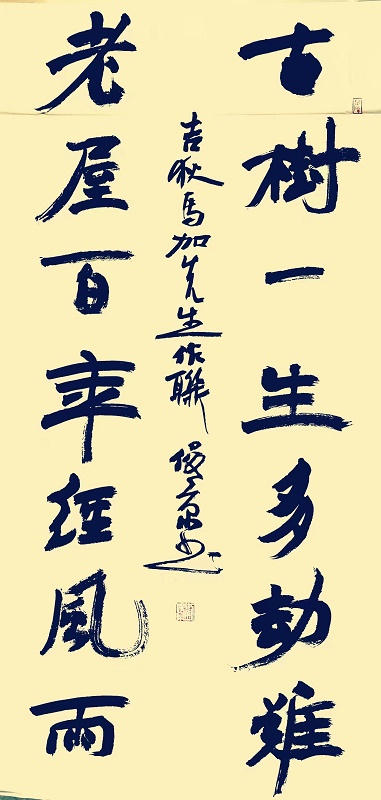 古樹一生多劫難
老屋百年經風雨
吉狄馬加先生作聯